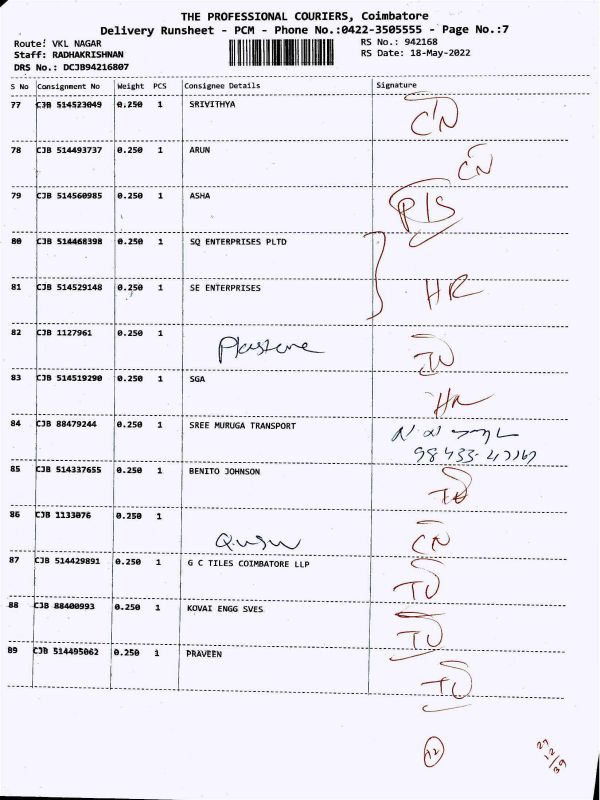 THE PROFESSIONAL COURIERS, Coimbatore
Delivery Runsheet - PCM - Phone No.:0422-3505555 - Page No.:7
Route: VKL NAGAR RS No.: 942168
Staff: RADHAKRISHNAN RS Date: 18-May-2022
DRS No.: DCJB94216807
S No Consignment No Weight PCS Consignee Details Signature
77 CJB 514523049 0.250 1 SRIVITHYA CN
78 CJB 514493737 0.250 1 ARUN CN
79 CJB 514560985 0.250 1 ASHA P/S
80 CJB 514468398 0.250 1 SQ ENTERPRISES PLTD
81 CJB 514529148 0.250 1 SE ENTERPRISES HR
82 CJB 1127961 0.250 1
83 CJB 514519290 0.250 1 SGA HR
84 CJB 88479244 0.250 1 SREE MURUGA TRANSPORT
85 CJB 514337655 0.250 1 BENITO JOHNSON
86 CJB 1133076 0.250 1 CN
87 CJB 514429891 0.250 1 G C TILES COIMBATORE LLP TU
88 CJB 88400993 0.250 1 KOVAI ENGG SVES TU
89 CJB 514495062 0.250 1 PRAVEEN TU
12
27
12
39